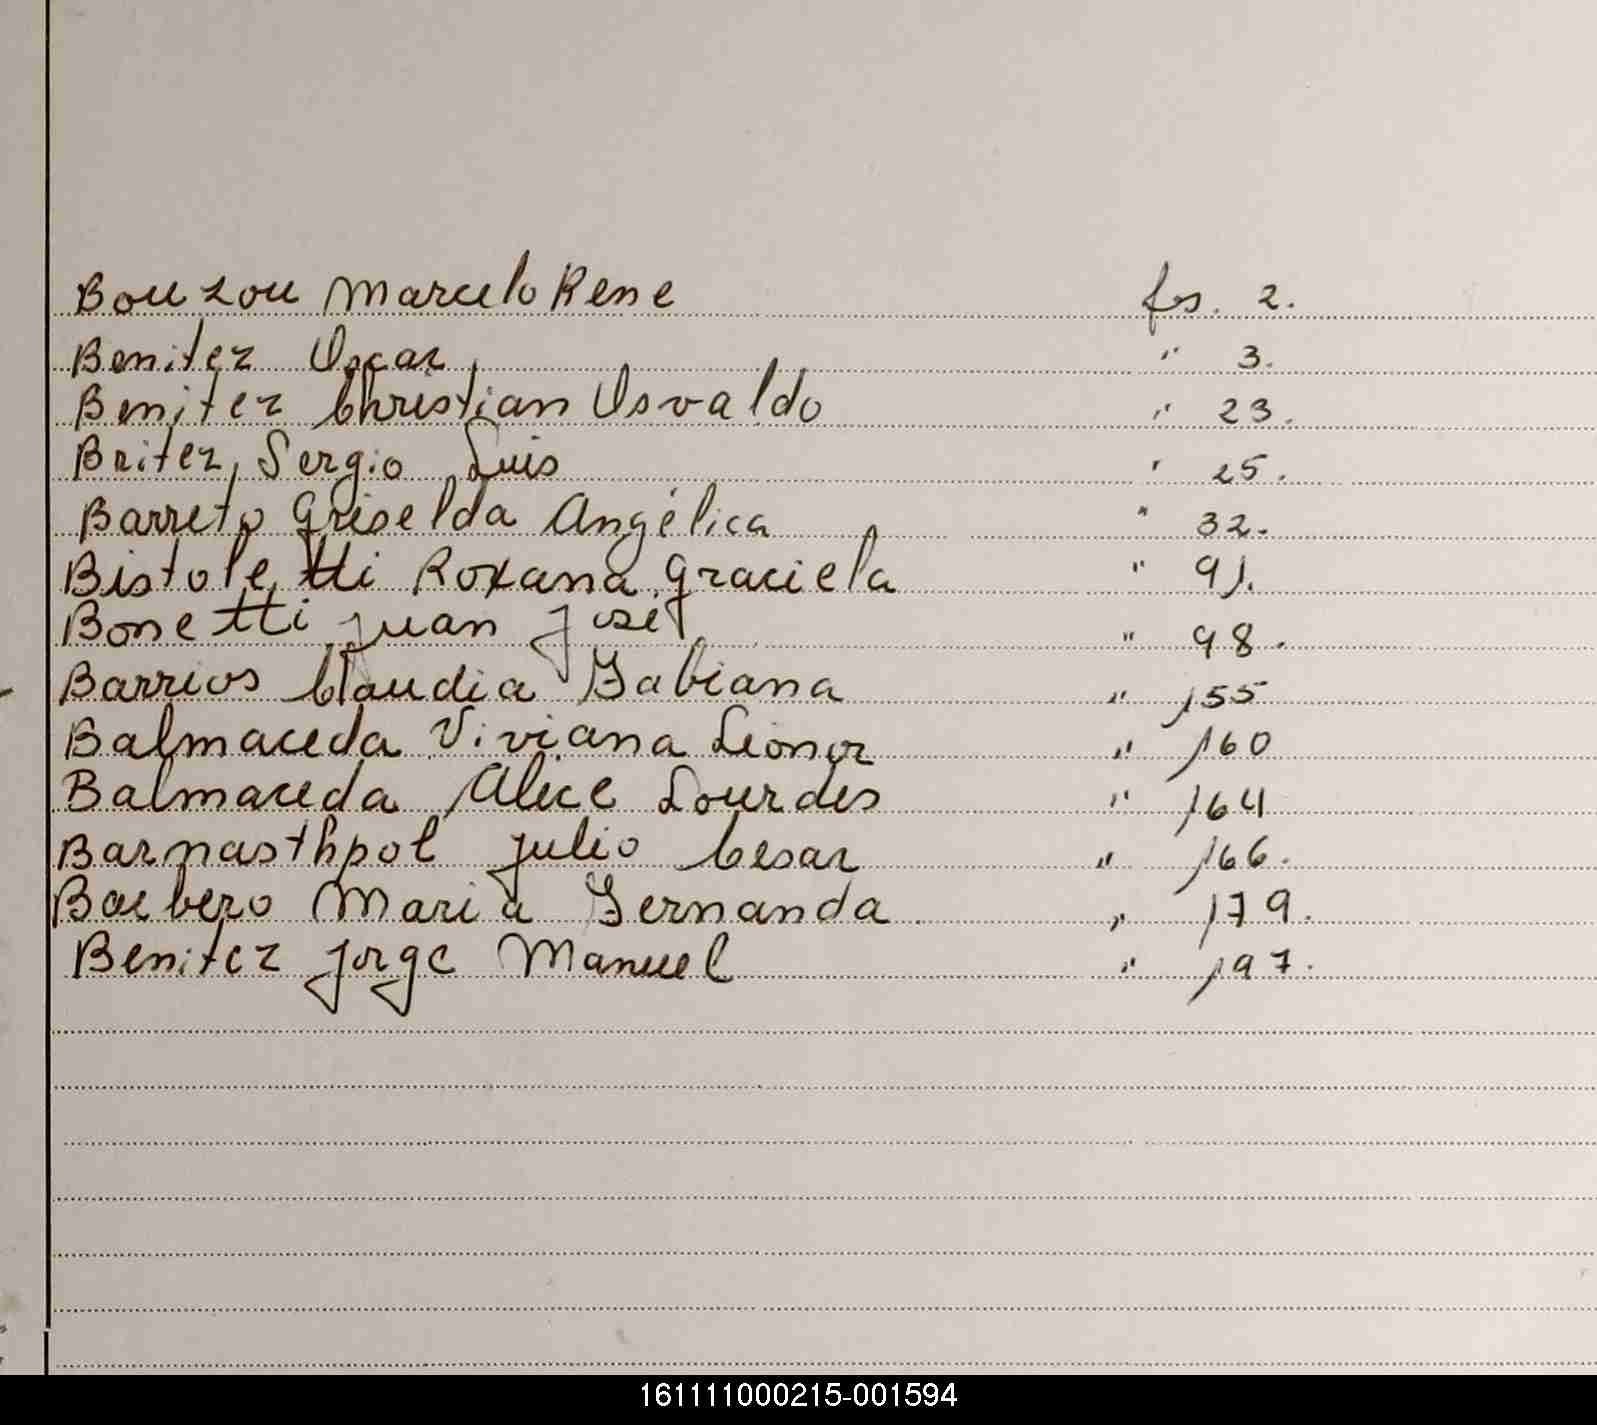 Bouzou Marcelo Rene fs. 2.
Benitez Oscar " 3.
Benitez Christian Osvaldo " 23.
Britez, Sergio Luis " 25.
Barreto Griselda Angélica " 32.
Bistoletti Roxana Graciela " 91.
Bonetti Juan José " 98.
Barrios Claudia Fabiana " 155
Balmaceda Viviana Leonor " 160
Balmaceda Alice Lourdes " 164
Barnasthpol Julio Cesar " 166.
Barbero Maria Fernanda " 179.
Benitez Jorge Manuel " 197.
161111000215-001594